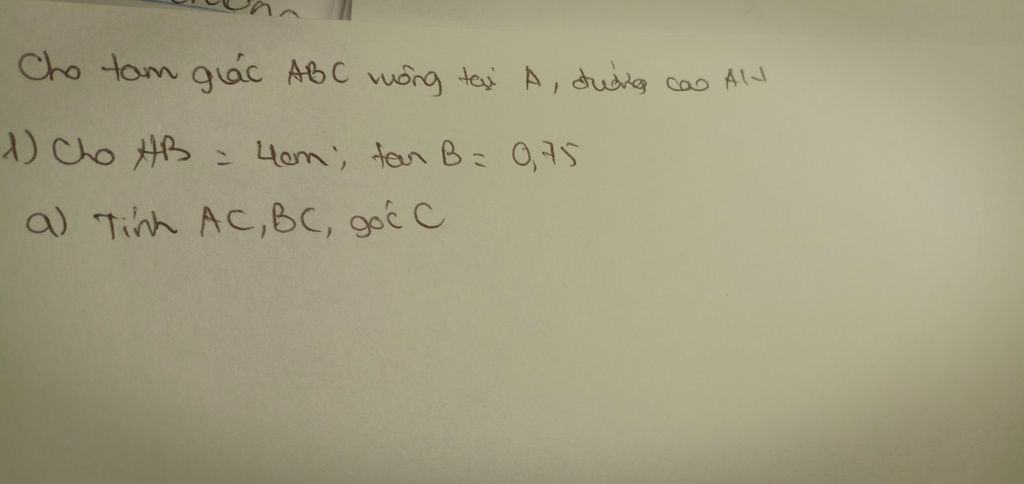 Cho tam giác ABC vuông tại A, đường cao AH
1) Cho AB = 4cm; tan B = 0,75
a) Tính AC, BC, góc C